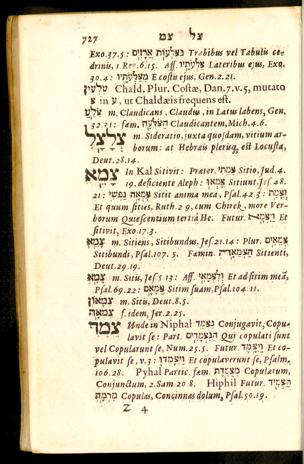 727 צל צמ
Exo.37.5: בצלעות ארזים Trabibus vel Tabulis cedrinis, 1 Reg.6.15. Aff. צלעותיו Lateribus ejus, Exo.
30.4: מצלעתיו E costis ejus, Gen.2.21.
עלעין Chald. Plur. Costæ, Dan.7.v.5, mutato
צ in ע, ut Chaldæis frequens est.
צלע m. Claudicans, Claudus, in Latus labens, Gen.
32.21: fæm. הצלעה Claudicantem, Mich.4.6.
צלצל m. Sideratio, juxta quosdam, vitium arborum: at Hebræis plerisq, est Locusta,
Deut.28.14.
צמא In Kal Sitivit: Præter. צמתי Sitio, Jud.4.
19. deficiente Aleph: צמאו Sitiunt, Jes.48.
21: צמאה נפשי Sitit anima mea, Psal.42.3: וצמת
Et quum sities, Ruth 2.9, cum Chirek, more Verborum Quiescentium tertiâ He. Futur. ויצמא Et
sitivit, Exo.17.3.
צמא m. Sitiens, Sitibundus, Jes.21.14: Plur. צמאים
Sitibundi, Psal.107.5. Famin. הצמאה Sitienti,
Deut.29.19.
צמא m. Sitis, Jes.5.13: Aff. ולצמאי Et ad sitim meã,
Psal.69.22: צמאם Sitim suam, Psal.104.11.
צמאון m. Sitis, Deut.8.5.
צמאה f. idem, Jer.2.25.
צמד Unde in Niphal נצמד Conjugavit, Copulavit se: Part. הנצמדים Qui copulati sunt
vel Copularunt se, Num.25.5. Futur. ויצמד Et copulavit se, v.3: ויצמדו Et copulaverunt se, Psalm.
106.28. Pyhal Partic. fæm. מצמדת Copulatum,
Conjunctum, 2 Sam.20 8. Hiphil Futur. תצמיד
מרמה Copulas, Concinnas dolum, Psal.50.19.
Z 4